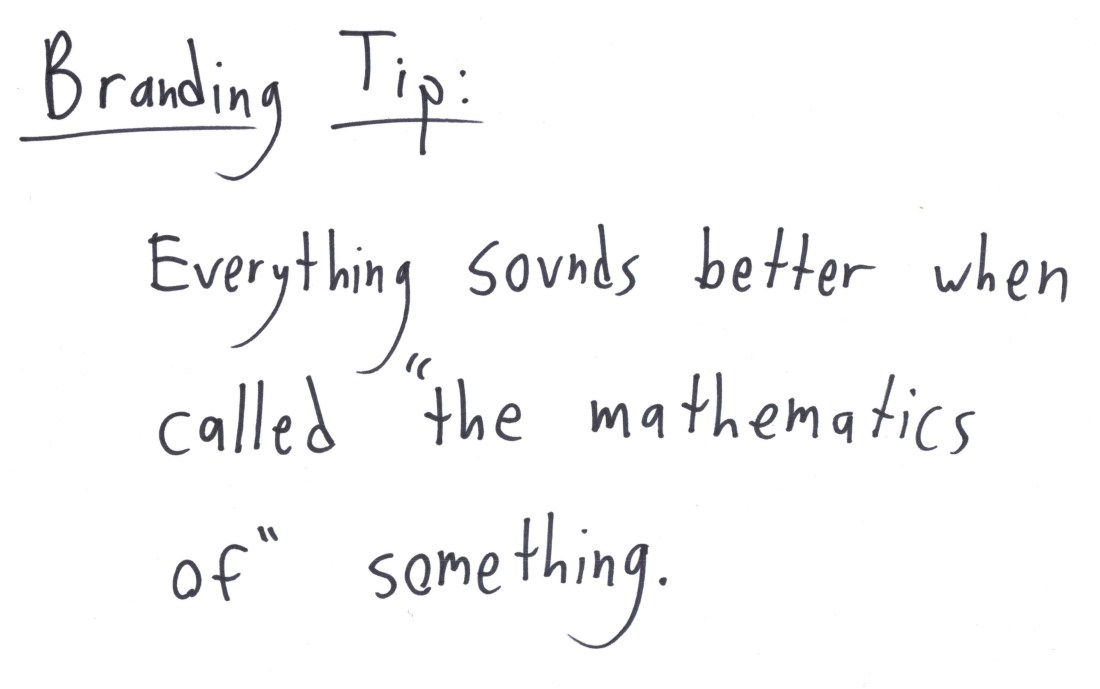 Branding Tip:
Everything sounds better when
called "the mathematics
of" something.